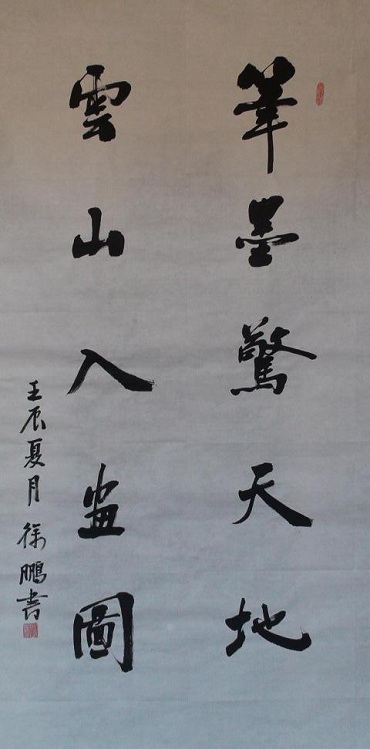 筆墨驚天地
雲山入畫圖
壬辰夏月 徐鵬書